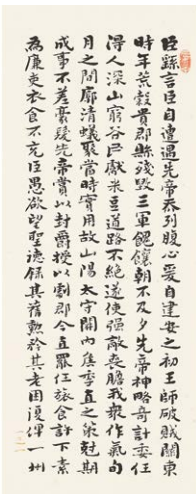 臣繇言臣自遭遇先帝忝列腹心爰自建安之初王師破賊關東
時年荒穀貴郡縣殘毀三軍餽饟朝不及夕先帝神略奇計委任
得人深山窮谷民獻米豆道路不絕遂使強敵喪膽我眾作氣旬
月之間廓清蟻聚當時實用故山陽太守關內侯季直之策尅期
成事不差豪髮先帝賞以封爵授以劇郡今直罷任旅食許下素
為廉吏衣食不充臣愚欲望聖德錄其舊勳矜其老困復俾一州